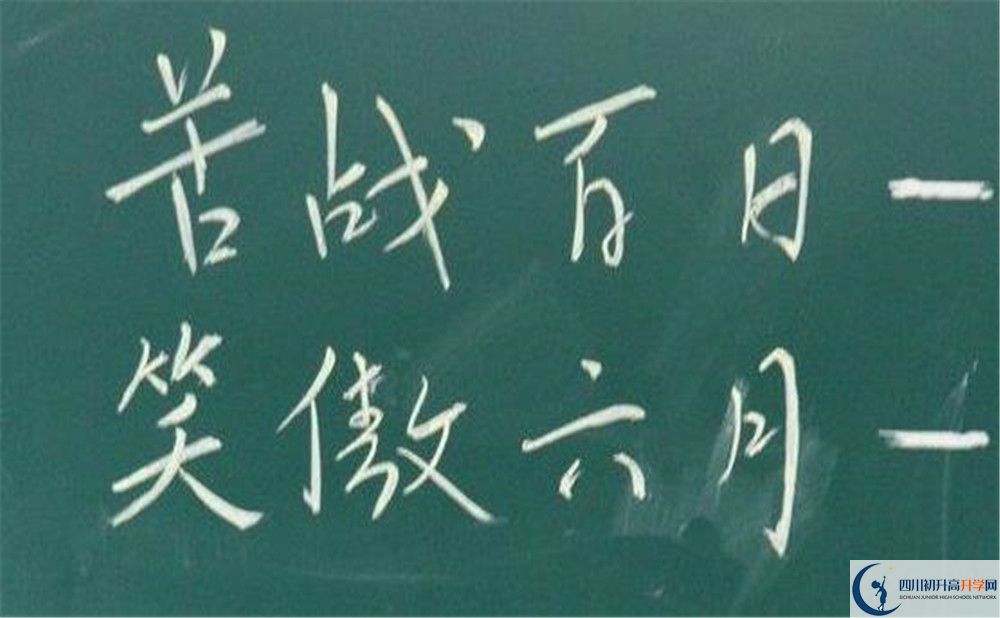 苦战百日一
笑傲六月一
四川初升高升学网
SICHUAN JUNIOR HIGH SCHOOL NETWORK